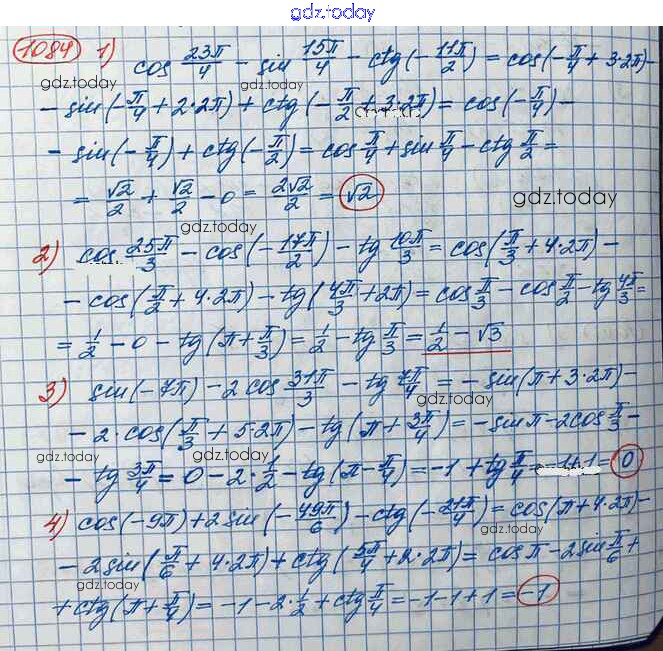 gdz.today
1084 1) cos 23π/4 - sin 15π/4 - ctg(-11π/2) = cos(-π/4 + 3·2π) -
gdz.today
- sin(-π/4 + 2·2π) + ctg(-π/2 + 3·2π) = cos(-π/4) -
- sin(-π/4) + ctg(-π/2) = cos π/4 + sin π/4 - ctg π/2 =
gdz.today
= √2/2 + √2/2 - 0 = 2√2/2 = √2
gdz.today
gdz.today
2) cos 25π/3 - cos(-17π/2) - tg 10π/3 = cos(π/3 + 4·2π) -
- cos(π/2 + 4·2π) - tg(4π/3 + 2π) = cos π/3 - cos π/2 - tg 4π/3 =
= 1/2 - 0 - tg(π + π/3) = 1/2 - tg π/3 = 1/2 - √3
3) sin(-7π) - 2 cos 31π/3 - tg 7π/4 = - sin(π + 3·2π) -
gdz.today
gdz.today
- 2·cos(π/3 + 5·2π) - tg(π + 3π/4) = - sin π - 2cos π/3 -
gdz.today
- tg 3π/4 = 0 - 2·1/2 - tg(π - π/4) = -1 + tg π/4 = -1+1 = 0
4) cos(-9π) + 2 sin(-49π/6) - ctg(-21π/4) = cos(π + 4·2π) -
gdz.today
- 2sin(π/6 + 4·2π) + ctg(5π/4 + 2·2π) = cos π - 2sin π/6 +
gdz.today
gdz.today
+ ctg(π + π/4) = -1 - 2·1/2 + ctg π/4 = -1-1+1 = -1